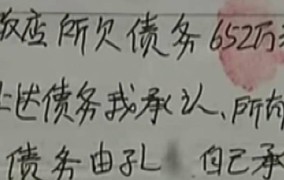 店所欠债务652万
上述债务我承认、所有
债务由孔 自己承